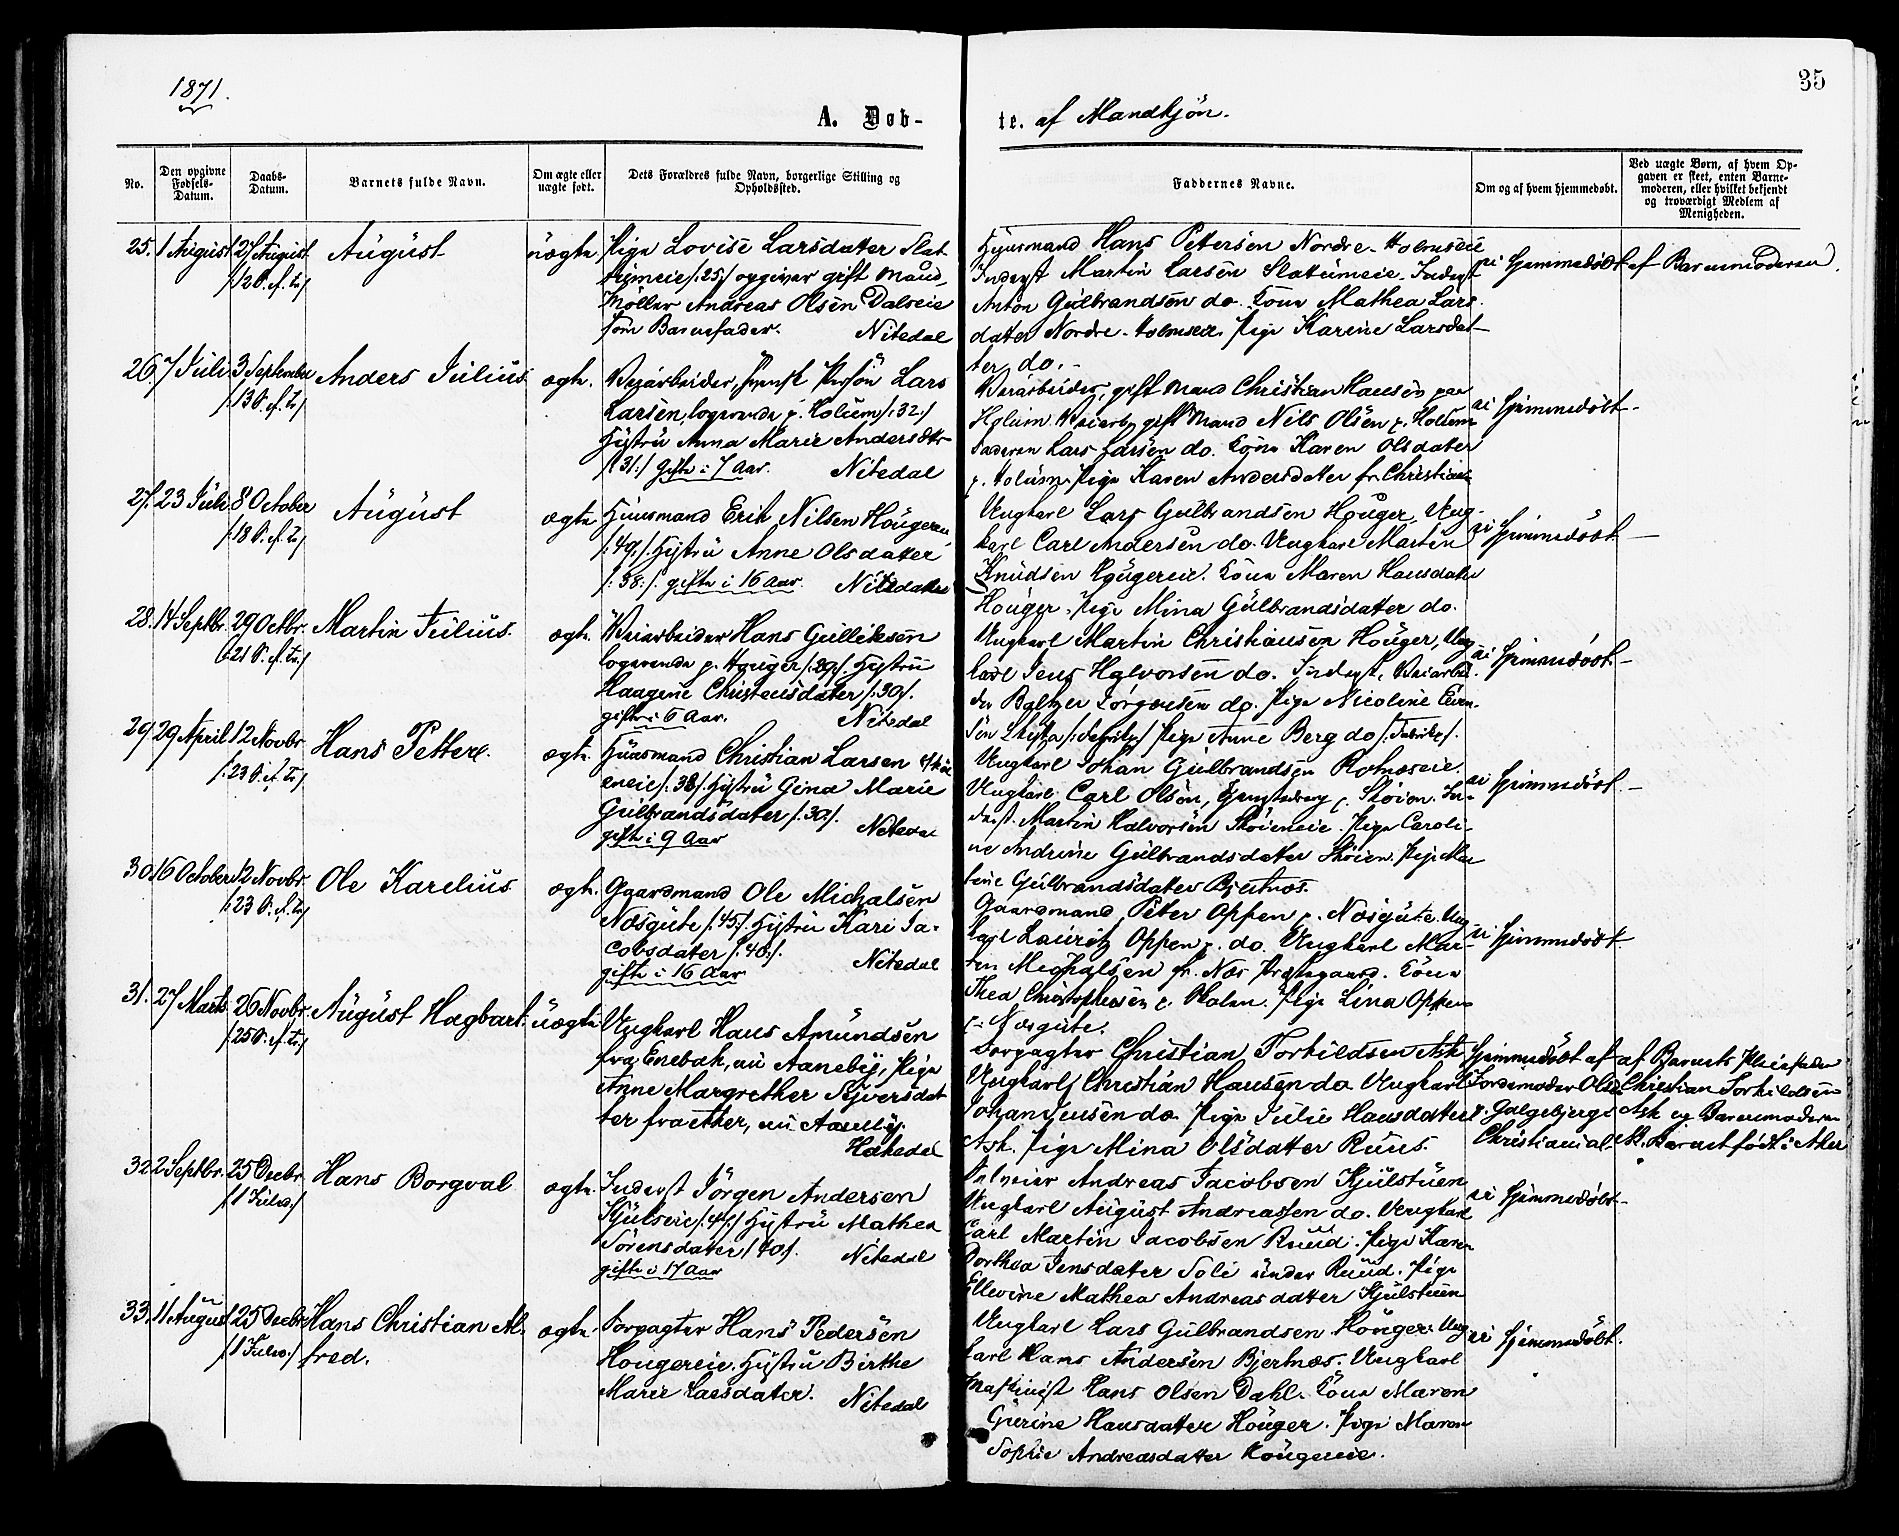 1871.
35
A. Døb-
te. af Mandkjön.
No.
Den opgivne Fødsels-Datum.
Daabs-Datum.
Barnets fulde Navn.
Om ægte eller uægte født.
Dets Forældres fulde Navn, borgerlige Stilling og Opholdssted.
Faddernes Navne.
Om og af hvem hjemmedøbt.
Ved uægte Børn, af hvem Opgaven er skeet, enten Barnemoderen, eller hvilket bekjendt og troværdigt Medlem af Menigheden.
25. 1 August 27 August August uægte Pige Lovise Larsdatter Slat-
/:12 S. ef. Tr:/ tumeie /:25:/ opgiver gift Mand,
Möller Andreas Olsen Dalseie
som Barnefader. Nitedal
Huusmand Hans Pettersen Nordre-Holmseie
Inderst Martin Larsen Slatumeie. Inderst
Anton Gulbrandsen do. Kone Mathea Lars-
datter Nordre-Holmseie. Pige Karine Larsdat-
ter do.-
ei hjemmedöbt
af Barnemoderen.
26. 7 Juli 3 September Anders Julius ægte. Veiarbeider, svensk Person Lars
/:13 S. ef. Tr:/ Larsen, logerende p. Holum /:32:/
Hustru Anna Marie Andersdtr.
/:31:/ gifte i 7 Aar. Nitedal
Veiarbeider, gift Mand Christian Hansen paa
Holum. Veiarb. gift Mand Nils Olsen p. Holum
Faderen Lars Larsen do. Kone Karen Olsdatter
p. Holum. Pige Karen Andersdatter fr. Christiania
ei hjemmedöbt-
27. 23 Juli 8 October August ægte Huusmand Erik Nilsen Hougereie
/:18 S. ef. Tr:/ /:49:/. Hustru Anne Olsdatter
/:38:/. gifte i 16 Aar. Nitedal
Ungkarl Lars Gulbrandsen Houger, Ung-
karl Carl Andersen do. Ungkarl Martin
Knudsen Hougereie. Kone Maren Hansdatter
Houger. Pige Mina Gulbrandsdatter do.
ei hjemmedöbt -
28. 14 Septbr. 29 Octbr. Martin Julius. ægte. Veiarbeider Hans Gulliksen
/:21 S. ef. Tr:/ logerende p. Houger /:29:/ Hustru
Haagine Christensdatter /:30:/.
gifte i 6 Aar. Nitedal
Ungkarl Martin Christiansen Houger, Ung-
karl Jens Halvorsen do. Inderst, Veiarbei-
der Baltzer Jörgensen do. Pige Nicoline Even-
sen Pige Anne Berg do
ei hjemmedöbt-
29 29 April 12 Novbr. Hans Petter. ægte. Huusmand Christian Larsen Skøi-
/:23 S. ef. Tr:/ eneie /:38:/. Hustru Gina Marie
Gulbrandsdatter /:30:/.
gifte i 9 Aar Nitedal
Ungkarl Johan Gulbrandsen Rotnæseie.
Ungkarl Carl Olsen, p. Skøien. In-
derst Martin Halvorsen Skøieneie. Pige Caroli-
ne Andrine Gulbrandsdatter Skøien. Pige Mar-
tine Gulbrandsdatter Bjertnæs.
ei hjemmedöbt -
30. 16 October 12 Novbr. Ole Karelius ægte. Gaardmand Ole Michalsen
/:23 S. ef. Tr:/ Næsgute /:45:/. Hustru Kari Ja-
cobsdatter /:40:/.
gifte i 16 Aar Nitedal
Gaardmand Peter Oppen p. Næsgute. Ung-
karl Lauritz Oppen p. do. Ungkarl Mar-
ten Michalsen fr. Næs Præstegaard. Kone
Thea Christophersen p. Pige Lina Oppen
p. Næsgute.
ei hjemmedöbt-
31. 27 Marts 26 Novbr. August Hagbart. uægte Ungkarl Hans Amundsen
/:25 S. ef. Tr:/ fra Enebak, nu Aaneby, Pige
Anne Margrethe Syversdat-
ter fra Æther, nu Aaneby.
Hakedal
Forpagter Christian Torkildsen Ask
Ungkarl Christian Hansen do Ungkarl
Johan Jensen do Pige Julie Hansdatter
Ask. Pige Mina Olsdatter Ruus.
Hjemmedöbt af
Jordemoder Olsen
p. Galgebjergs
Christiania.
af Barnets Pleiefader
Christian Torkildsen
Ask og Barnemoderen
NB. Barnet født i Aker
32 2 Septbr. 25 Decbr. Hans Borgval ægte. Inderst Jörgen Andersen
/:1 Juled.:/ Kjulseie /:44:/ Hustru Mathea
Sörensdatter /:40:/.
gifte i 17 Aar Nitedal
Andreas Jacobsen Kjulstuen
Ungkarl August Andreassen do. Ungkarl
Carl Martin Jacobsen Ruud. Pige Karen
Dorthea Jensdatter Soli under Ruud. Pige
Ellevine Mathea Andreasdatter Kjulstuen
ei hjemmedöbt-
33. 11 August 25 Decbr. Hans Christian Al- ægte. Forpagter Hans Pedersen
/:1 Juled.:/ fred. Hougereie. Hustru Birthe
Marie Larsdatter. Nitedal
Ungkarl Lars Gulbrandsen Houger. Ung-
karl Hans Andersen Bjertnæs. Ungkarl
Maskinist Hans Olsen Dahl. Kone Maren
Gurine Hansdatter Houger. Pige Maren
Sophie Andreasdatter Hougereie.
ei hjemmedöbt.